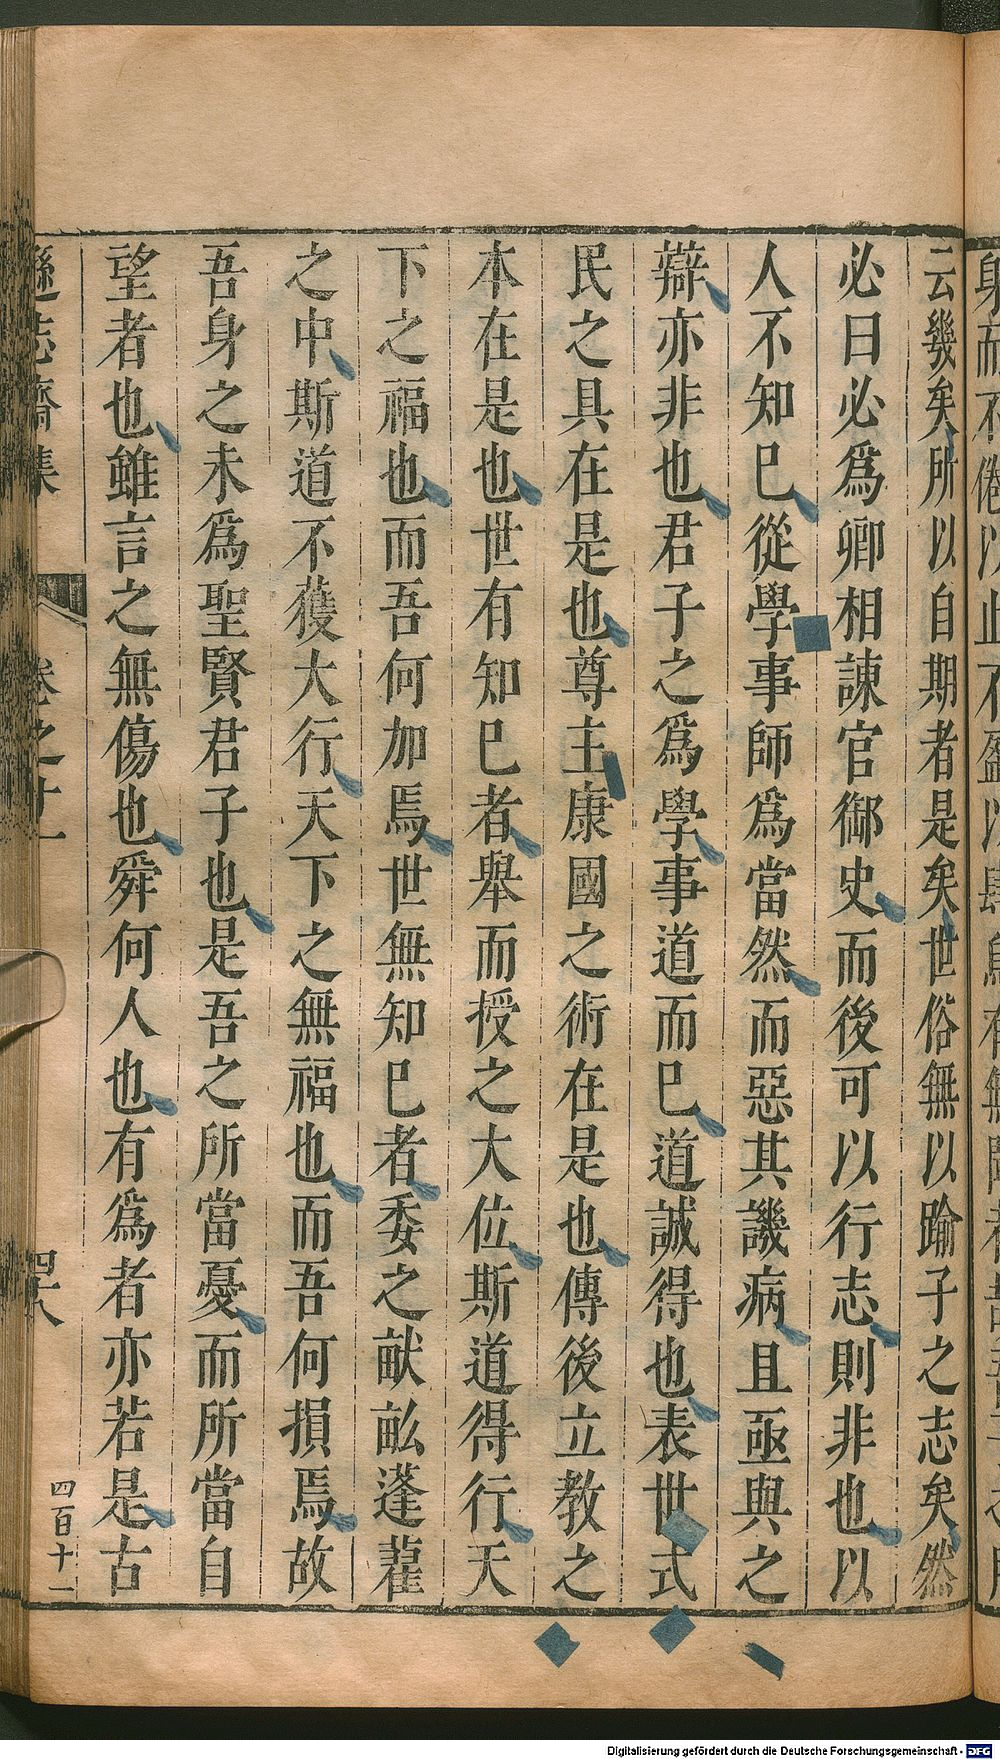 云幾矣所以自期者是矣世俗無以踰子之志矣然
必曰必爲卿相諫官御史而後可以行志則非也以
人不知已從學事師爲當然而惡其譏病且亟與之
辯亦非也君子之爲學事道而已道誠得也表世式
民之具在是也尊主康國之術在是也傳後立教之
本在是也世有知巳者舉而授之大位斯道得行天
下之福也而吾何加焉世無知巳者委之献畝蓬藿
之中斯道不獲大行天下之無福也而吾何損焉故
吾身之未爲聖賢君子也是吾之所當憂而所當自
望者也雖言之無傷也舜何人也有爲者亦若是古
遜志齋集
卷之十一
四十八
四百十一
Digitalisierung gefördert durch die Deutsche Forschungsgemeinschaft - DFG